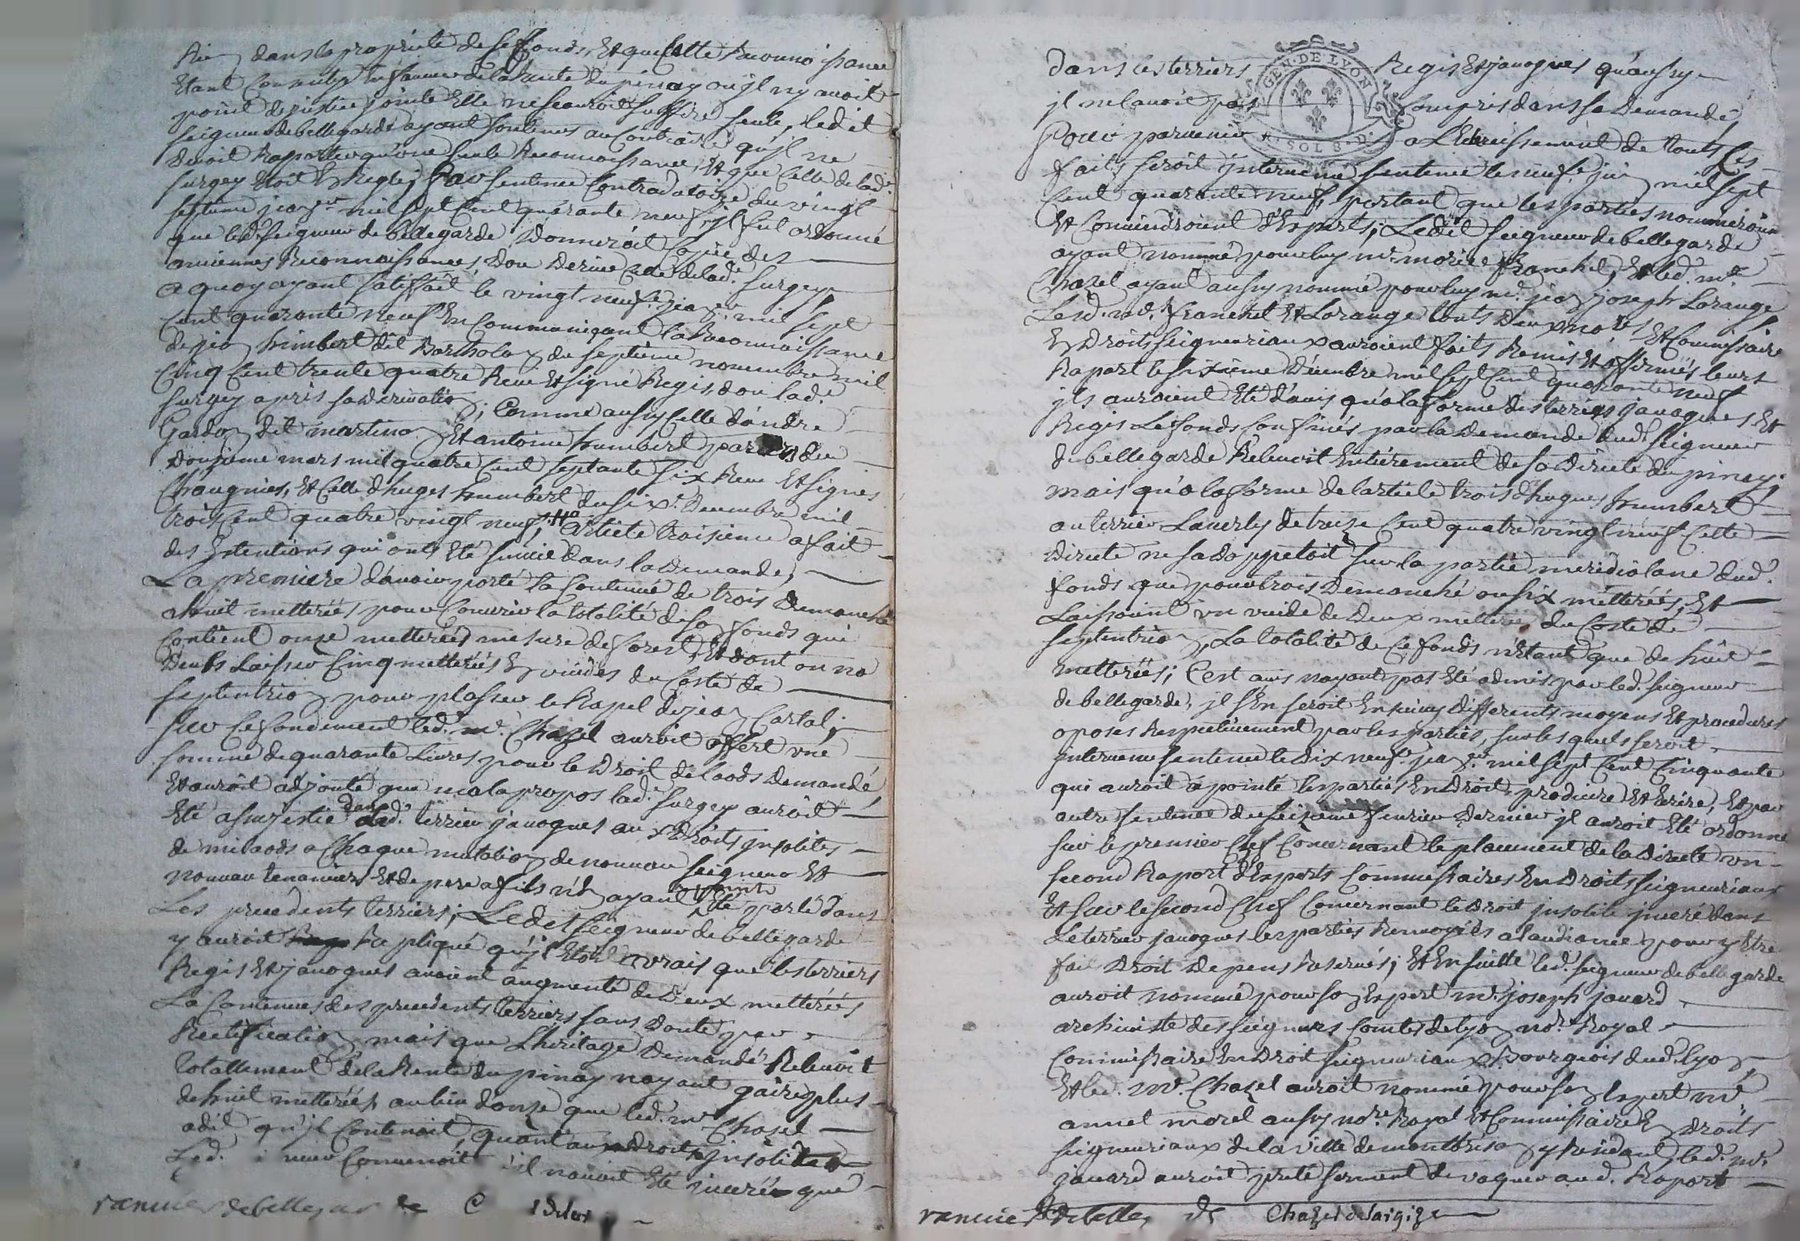 Rien dans la proprieté de ce fonds, Et que cette Reconnoissance
Etant Consentie En faveur de la Rente du pinay ou il ny avoit
point de justice jointe Elle ne scauroit suffire seule, ledit
seigneur de bellegarde ayant soutenus au Contraire qu'il ne
devoit Raporter qu'une seule Reconnoissance, Et que Celle de lad.
surgey Etoit En Regle; Par sentence Contradictoire du vingt
septieme janver mil sept Cent quarante neuf il fut ordonné
que led. seigneur de bellegarde Donneroit Copie des
anciennes Reconnoissances, Dou Derive Celle de lad. surgey
a quoy ayant satisfait le vingt neuf janver mil sept
Cent quarante neuf En Communiquant la Reconnoissance
de jean humbert dit Bartholox du septieme novembre mil
Cinq Cent trente quatre Reçue Et signé Regis, dou lad.
surgey apris sa Derivation; Comme aussy Celle d'andre
Gardon dit martino Et antoine humbert du
Douzieme mars mil quatre Cent septante six Reçue Et signés
Chaugnies, Et Celle d'huges humbert du six. Decembre mil
trois Cent quatre vingt neuf, article troisieme a fait
des Extentions qui ont Eté suivie dans la Demande;
La premiere d'avoir porté la Contenue de trois Demanché
a huit metterées pour Couvrir la totalité de son fonds qui
Contient onze metterées mesure de forest, Et dont on na
Deubs Laisser Cinq metterées En vuides du Costé de
septentrion pour plasser le Rapel de jean Cartal;
sur Ce fondement led. mr. Chazel auroit offert une
somme de quarante Livres pour le Droit de Laods Demandé
Et auroit adjouté que mal a propos lad. surgey auroit
Eté assujettie dans led. terrier janoques aux Droits insolites
de milaods a Chaque mutation de nouveau seigneur Et
nouveau tenancier Et de pere a fils n'en ayant point Eté parlé dans
Les precedents terriers; Ledit seigneur de bellegarde
y auroit Repliqué qu'il Etoit vrais que les terriers
Regis Et janoques avoient augmenté de Deux metterées
La Contenue des precedents terriers sans Doute par
Rectification mais que L'heritage Demandé Relevoit
totallement de la Rente du pinay nayant gaire plus
de huit metterées au lieu d'onze que led. mr. Chazel
a dit qu'il Contenoit, quant aux Droits insolites
Led. Convenoit qu'il n'avoit Eté inserée que
vanner de bellegarde C
Dans les terriers Regis Et janoques qu'aussy
il ne lavoit pas Compris dans sa Demande
GEN. DE LYON
SOL 8 D
Pour parvenir a L'Eclaircissement de touts Ces
faits, seroit intervenue sentence le neuf juin mil sept
Cent quarante neuf, portant que les parties nommeroient
Et Conviendroient d'Experts; Ledit seigneur de bellegarde
ayant nommé pour luy mr. morice franchet, Et led. mr.
Chazel ayant aussy nommé pour luy mr. jean joseph Lorange
Lesd. mrs. franchet Et Lorange touts Deux nores. Et Commissaire
En Droits seigneuriaux auroient faits Remis Et affirmés leurs
Raport le sixieme Decembre mil sept Cent quarante neuf
ils auroient Eté d'avis qu'a la forme des terriers janoques Et
Regis Le fonds Confinés par la Demande dud. seigneur
de bellegarde Relevoit Entierement de sa Directe du pinay;
mais qu'a la forme de l'article trois d'hugues humbert
au terrier Laverly de treize Cent quatre vingt neuf Cette
Directe ne sadoppetoit sur la partie meridiolane dud.
fonds que pour trois Demanché ou six metterées, Et
Laissoient un vuide de Deux metterées du Costé de
septentrion La totalité de Ce fonds n'étant que de huit
metterées; C'est avis nayant pas Eté admis par led. seigneur
de bellegarde, il s'En seroit Ensuivy differents moyens Et procedures
oposés Respectivement par les parties, sur les quels seroit
intervenue sentence le Dix neuf janer. mil sept Cent Cinquante
qui auroit apointé les parties En Droit, produire Et Ecrire, Et par
autre sentence du seizieme fevrier Dernier il auroit Eté ordonné
sur le premier Chef Concernant le placement de la Directe un
second Raport d'Experts Commissaires En Droits seigneuriaux
Et sur le second Chef Concernant le Droit insolite inseré dans
Le terrier janoques les parties Renvoyés a laudiance pour y Etre
fait Droit Depens Reservés; Et En suitte led. seigneur de bellegarde
auroit nommé pour son Expert mr. joseph jouard
archiviste des seigneurs Comtes de lyon nore. Royal
Commissaire En Droit seigneuriaux Bourgeois dud. lyon
Et led. mr. Chazel auroit nommé pour son Expert mr.
annet morel aussy nore. Royal Et Commissaire En droits
seigneuriaux de la ville de montbrison y Residant, led. mr.
jouard auroit preté serment de vaquer aud. Raport
vanner de belleg de Chazel